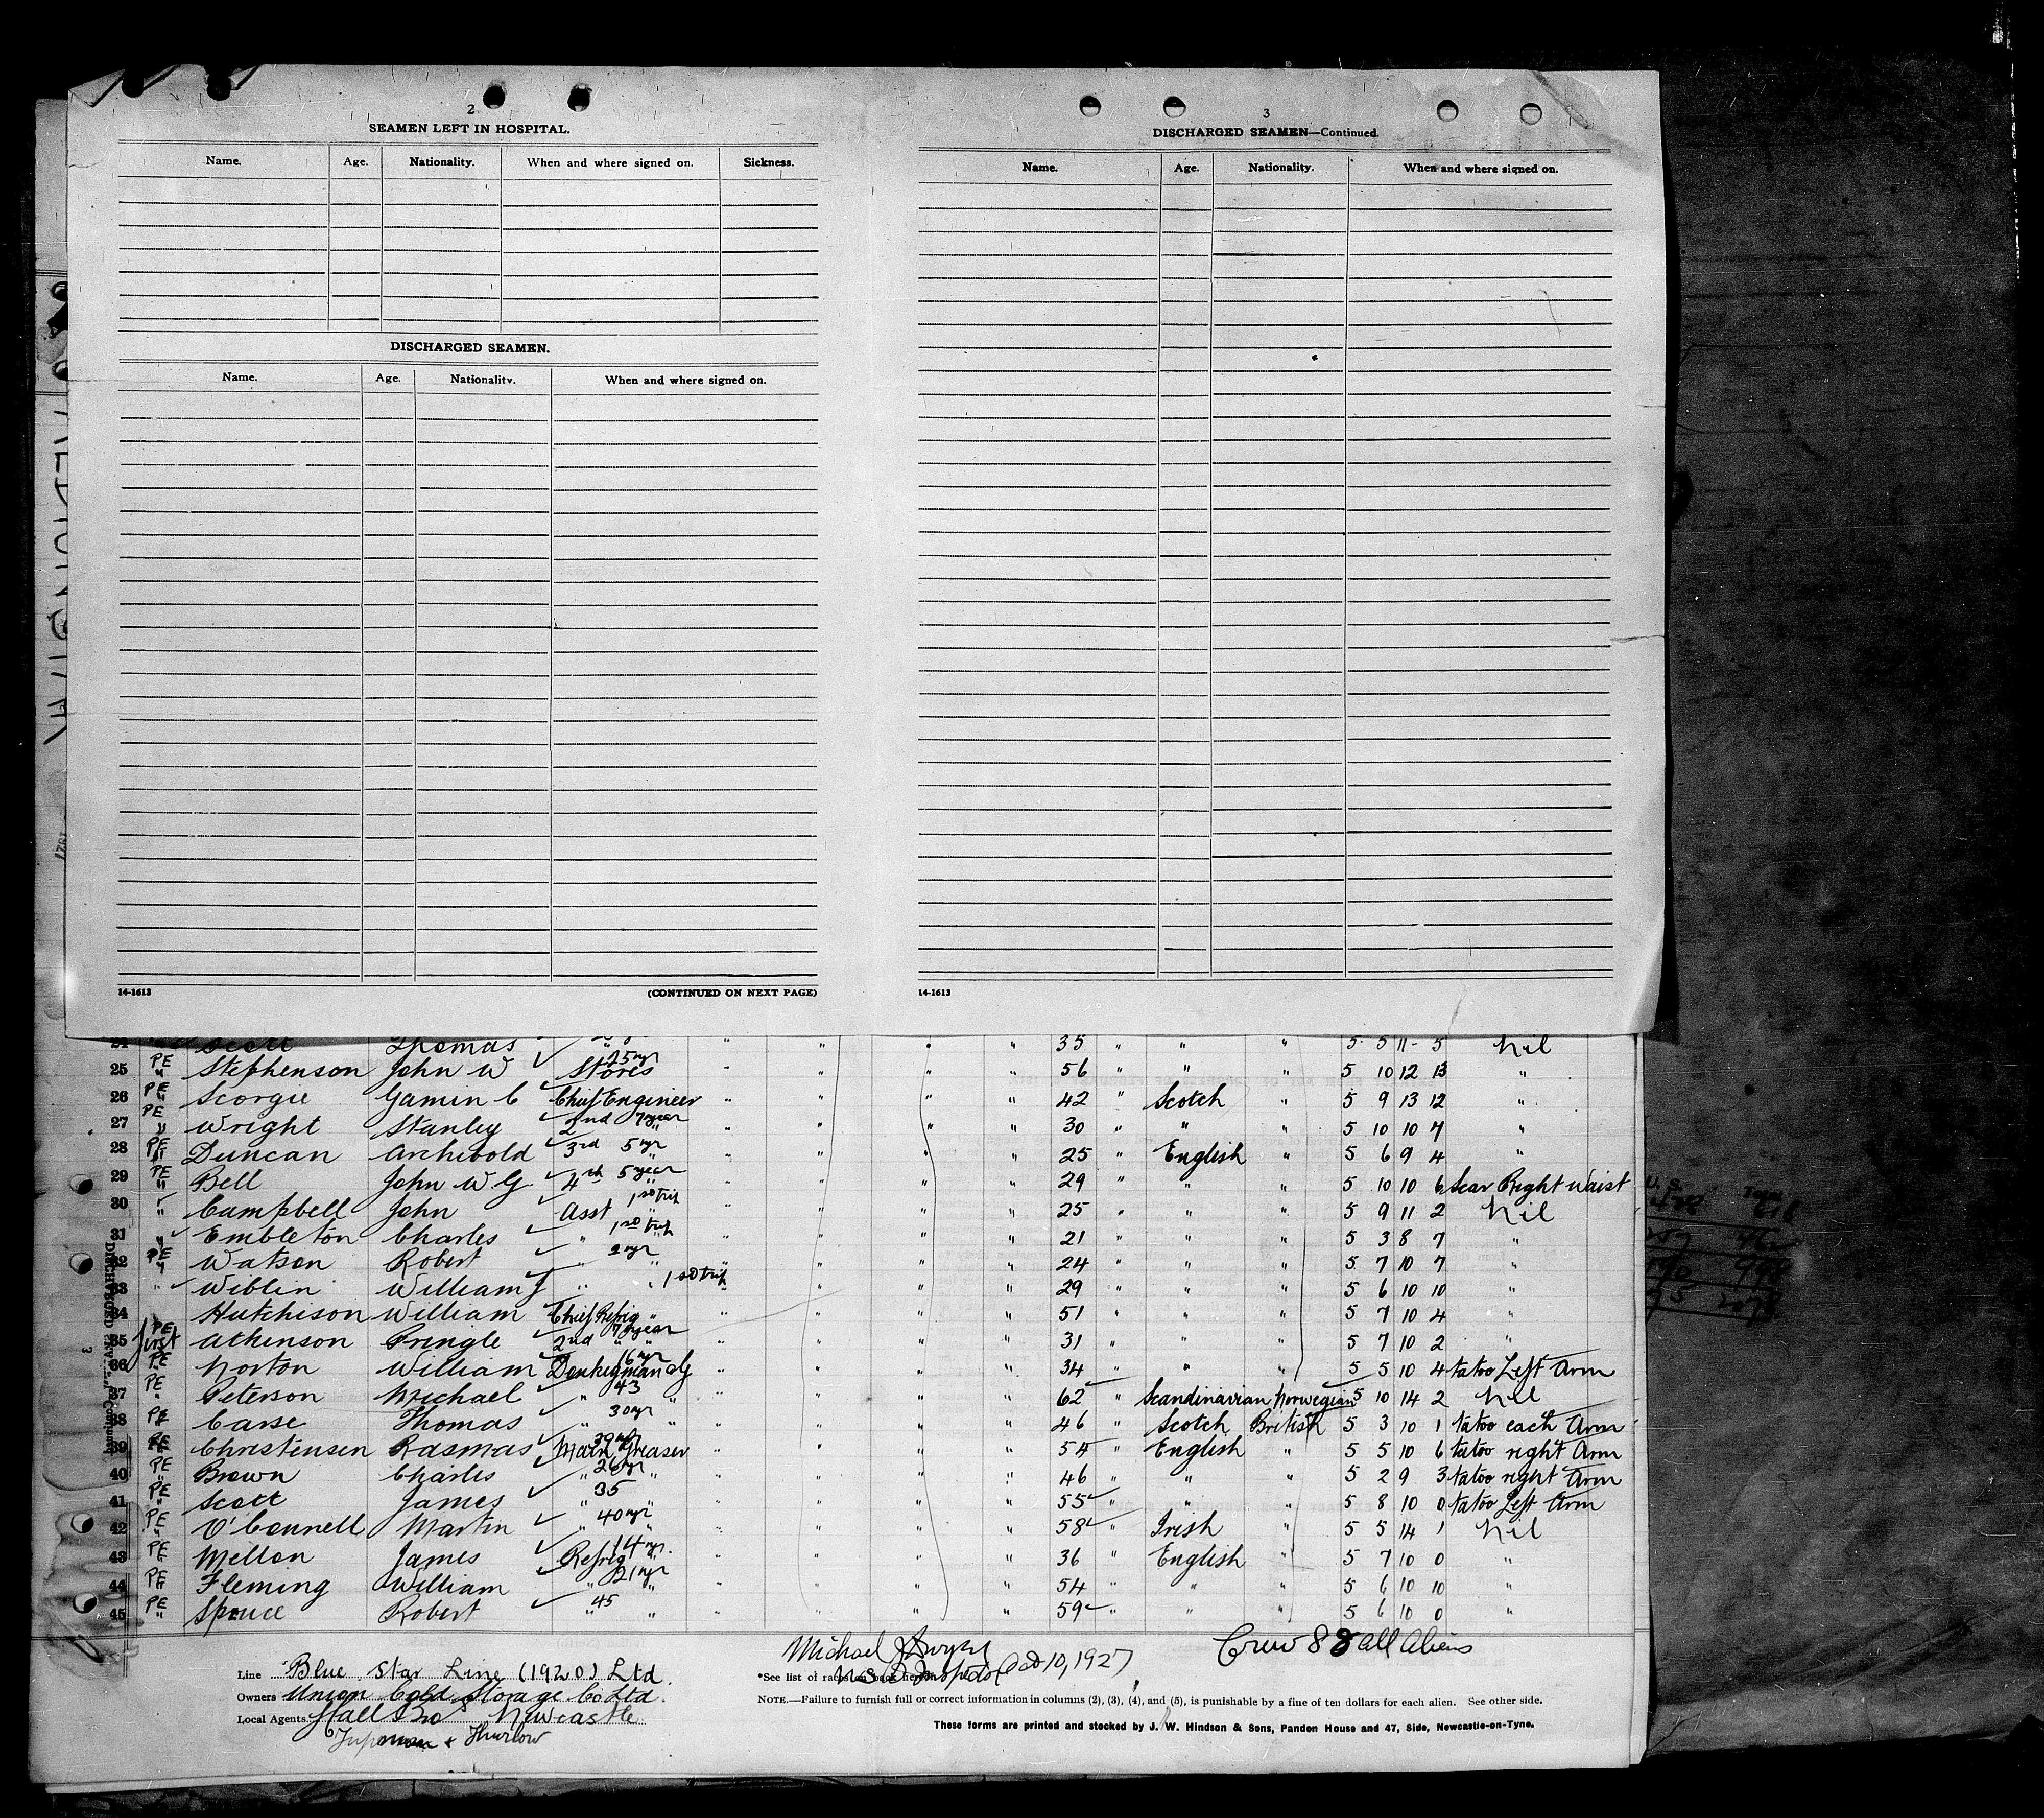 2
SEAMEN LEFT IN HOSPITAL.
Name. Age. Nationality. When and where signed on. Sickness.
DISCHARGED SEAMEN.
Name. Age. Nationality. When and where signed on.
14-1613 (CONTINUED ON NEXT PAGE)
3
DISCHARGED SEAMEN—Continued.
Name. Age. Nationality. When and where signed on.
14-1613
24 Scott Thomas " " " " 35 " " " 5 5 11 5 Nil
25 PE " Stephenson John W ✓ 25 yr Stores " " " " 56 " " " 5 10 12 13 "
26 PE " Scorgie Gamin C ✓ Chief Engineer " " " " 42 " Scotch " 5 9 13 12 "
27 PE " Wright Stanley ✓ 2nd 7 year " " " " " 30 " " " 5 10 10 7 "
28 PE " Duncan Archibold ✓ 3rd 5 yr " " " " 25 " English " 5 6 9 4 "
29 PE " Bell John W G ✓ 4th 5 year " " " " " 29 " " " 5 10 10 6 Scar Right Waist
30 " Campbell John ✓ Asst 1st trip " " " " " 25 " " " 5 9 11 2 Nil
31 " ✓ Embleton Charles ✓ " 1st trip " " " " " 21 " " " 5 3 8 7 "
32 PE " Watson Robert ✓ " 2 yr " " " " " 24 " " " 5 7 10 7 "
33 " ✓ Wiblin William J ✓ " " 1st trip " " " " 29 " " " 5 6 10 10 "
34 Hutchison William Chief Refrig " " " " " 51 " " " 5 7 10 4 "
35 PE first Atkinson Pringle ✓ 2nd 7 year " " " " " " 31 " " " 5 7 10 2 "
36 PE " Norton William ✓ 16 yr Donkeyman " " " " 34 " " " 5 5 10 4 tatoo Left Arm
37 PE " Peterson Michael ✓ " 43 " " " " " 62 ✓ " Scandinavian Norwegian 5 10 14 2 Nil
38 PE " Carse Thomas ✓ " 30 yr " " " " " 46 " Scotch British 5 3 10 1 tatoo each Arm
39 PE " Christensen Rasmas ✓ Main Greaser " " " " 54 " English " 5 5 10 6 tatoo right Arm
40 PE " Brown Charles ✓ " 26 yr " " " " " 46 " " " 5 2 9 3 tatoo right Arm
41 PE " Scott James ✓ " 35 " " " " " 55 ✓ " " " 5 8 10 0 tatoo Left Arm
42 PE " O'Connell Martin ✓ " 40 yr " " " " " 58 ✓ " Irish " 5 5 14 1 Nil
43 PE " Mellon James ✓ Refrig 14 yr. " " " " " 36 " English " 5 7 10 0 "
44 PE " Fleming William ✓ " 21 yr " " " " " 54 " " " 5 6 10 10 "
45 PE " Spence Robert ✓ " 45 " " " " " 59 ✓ " " " 5 6 10 0 "
Crew 88 all Aliens
Michael
U S Inspector Oct 10, 1927
Line Blue Star Line (1920) Ltd.
*See list of races on back hereof.
Owners Union Cold Storage Co Ltd.
NOTE.—Failure to furnish full or correct information in columns (2), (3), (4), and (5), is punishable by a fine of ten dollars for each alien. See other side.
Local Agents Hall Bros Newcastle.
These forms are printed and stocked by J. W. Hindson & Sons, Pandon House and 47, Side, Newcastle-on-Tyne.
& Thurlow